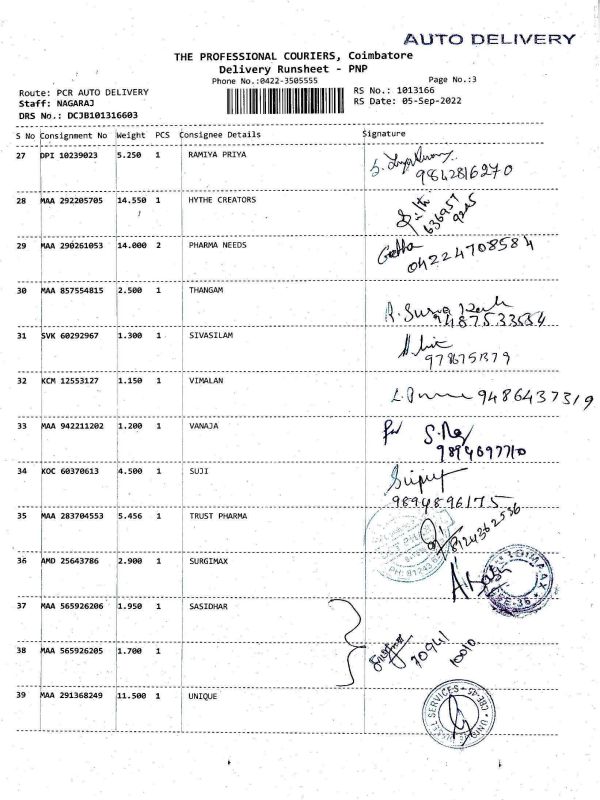 AUTO DELIVERY
THE PROFESSIONAL COURIERS, Coimbatore
Delivery Runsheet - PNP
Phone No.:0422-3505555
Page No.:3
Route: PCR AUTO DELIVERY
RS No.: 1013166
Staff: NAGARAJ
RS Date: 05-Sep-2022
DRS No.: DCJB101316603
S No Consignment No Weight PCS Consignee Details Signature
27 DPI 10239023 5.250 1 RAMIYA PRIYA
9842816270
28 MAA 292205705 14.550 1 HYTHE CREATORS
636957
9245
29 MAA 290261053 14.000 2 PHARMA NEEDS
Geetha
04224708584
30 MAA 857554815 2.500 1 THANGAM
9487533534
31 SVK 60292967 1.300 1 SIVASILAM
32 KCM 12553127 1.150 1 VIMALAN
9486437319
33 MAA 942211202 1.200 1 VANAJA
for S.Raj
9894697710
34 KOC 60370613 4.500 1 SUJI
9894896175
35 MAA 283704553 5.456 1 TRUST PHARMA
8124362556
36 AMD 25643786 2.900 1 SURGIMAX
37 MAA 565926206 1.950 1 SASIDHAR
38 MAA 565926205 1.700 1
70941
10010
39 MAA 291368249 11.500 1 UNIQUE